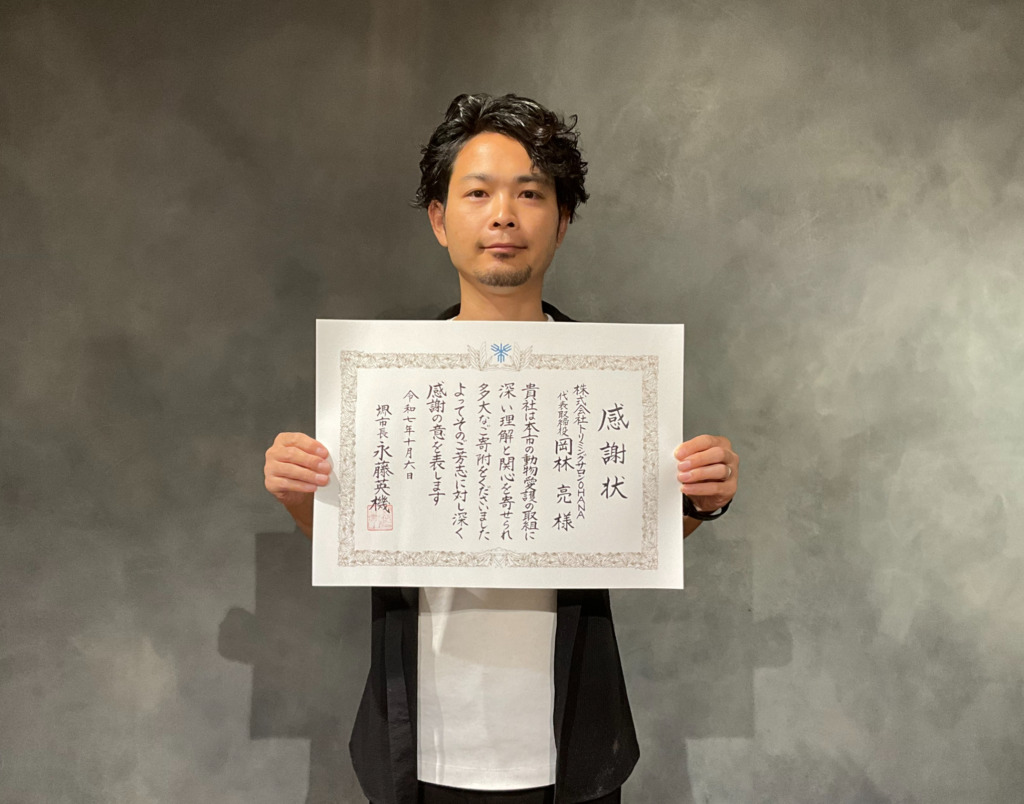 感謝状
株式会社トリミングサロンOHANA
代表取締役 岡林 亮 様
貴社は本市の動物愛護の取組に
深い理解と関心を寄せられ
多大なご寄附をくださいました
よってそのご芳志に対し深く
感謝の意を表します
令和七年十月六日
堺市長 永藤英機